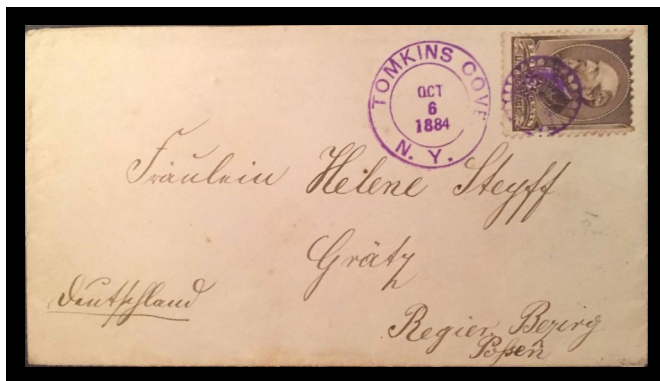 TOMKINS COVE
OCT
6
1884
N. Y.
Fräulein Helene Steyff
Grätz
Deutschland
Regier. Bezirg
Posen